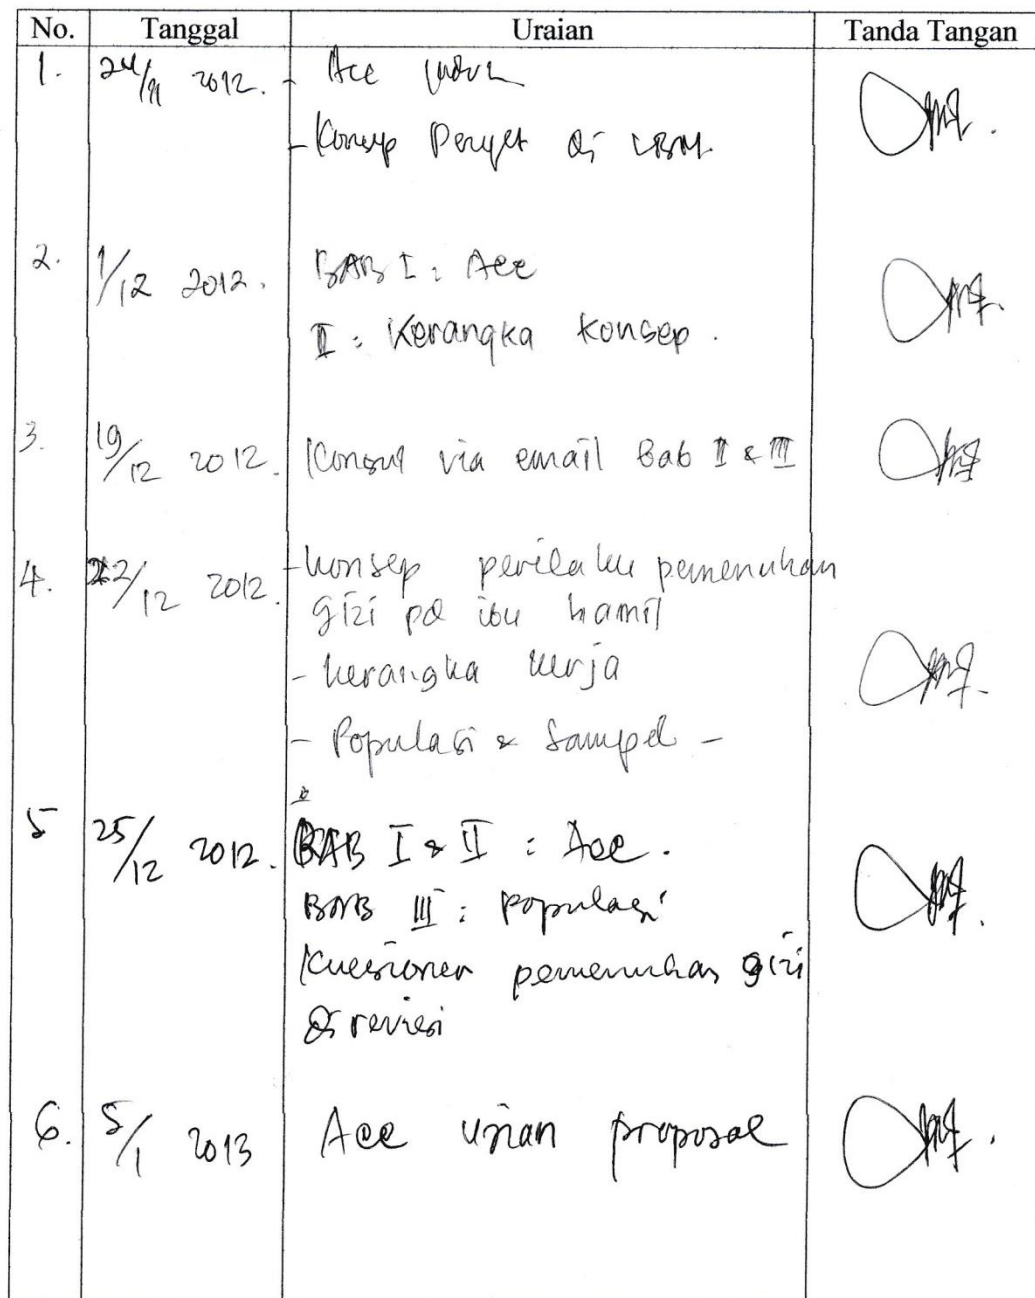 No. Tanggal Uraian Tanda Tangan
1. 24/11 2012. - Acc
- Konsep di
2. 1/12 2012. BAB I : Acc
II : Kerangka konsep.
3. 19/12 2012. Konsul via email Bab II & III
4. 22/12 2012. - konsep perilaku pemenuhan
gizi pd ibu hamil
- kerangka kerja
- Populasi & Sampel -
5 25/12 2012. BAB I & II : Acc.
BAB III : populasi
Kuesioner pemenuhan gizi
di revisi
6. 5/1 2013 Acc ujian proposal